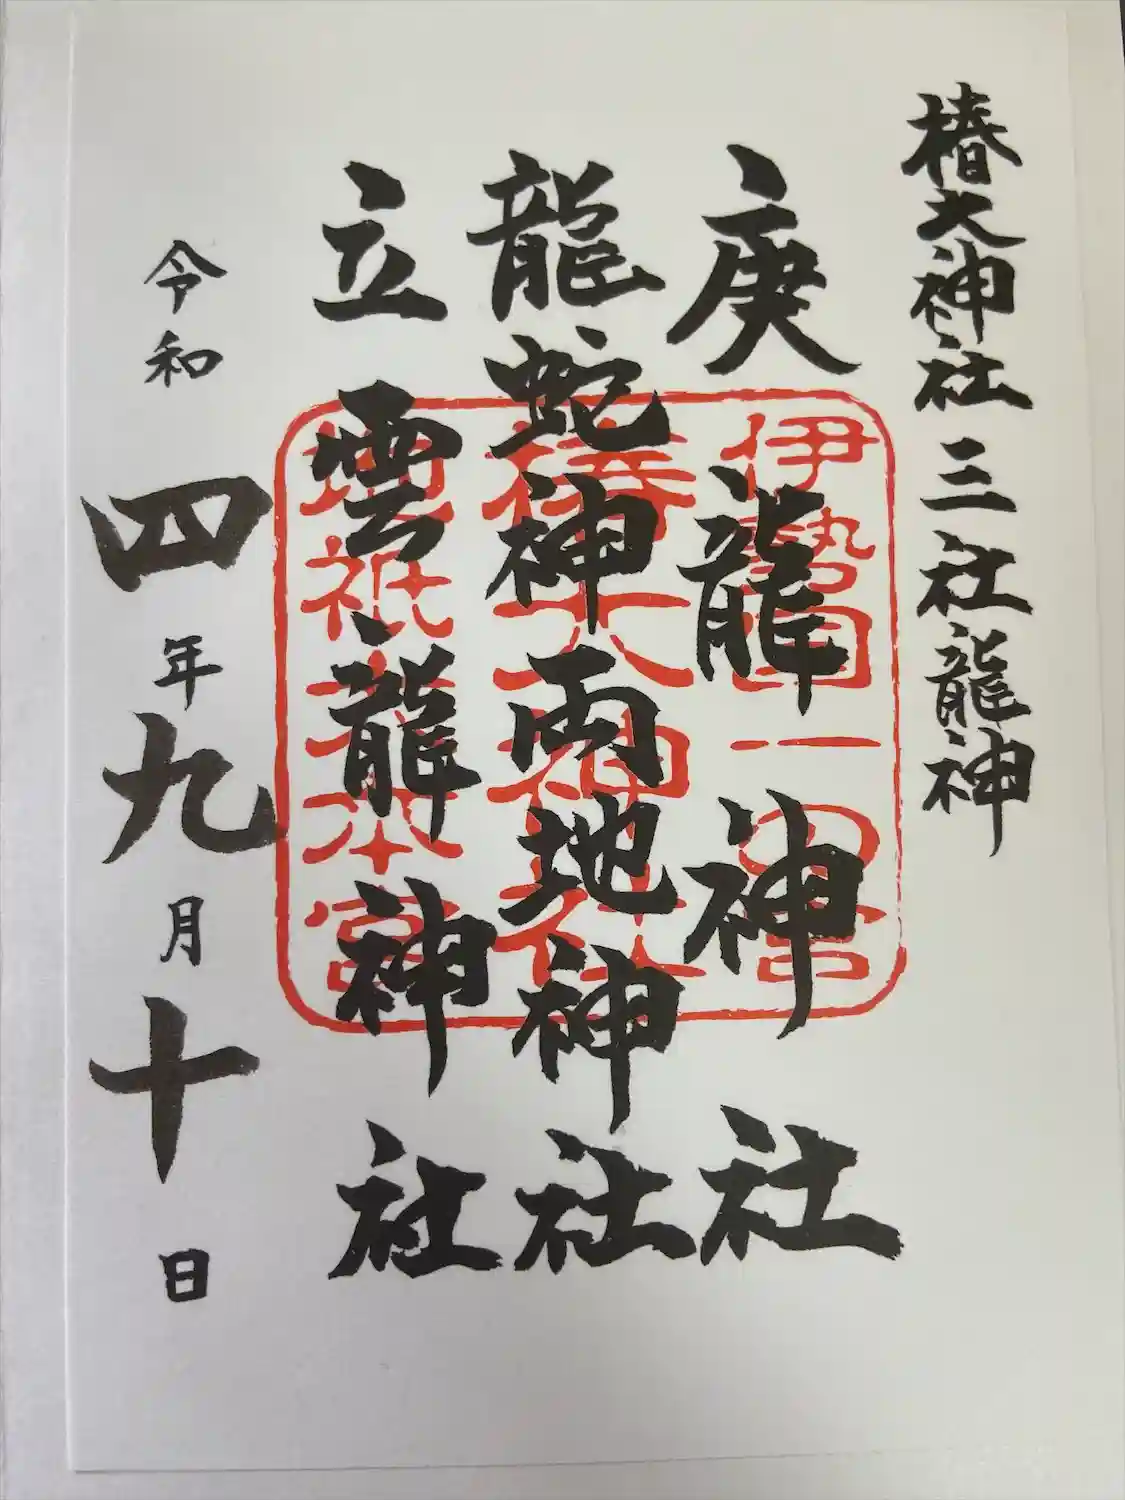 椿大神社 三社龍神
庚龍神社
龍蛇神両地神社
立雲龍神社
伊勢国一の宮
椿大神社
地祇大本宮
令和四年九月十日